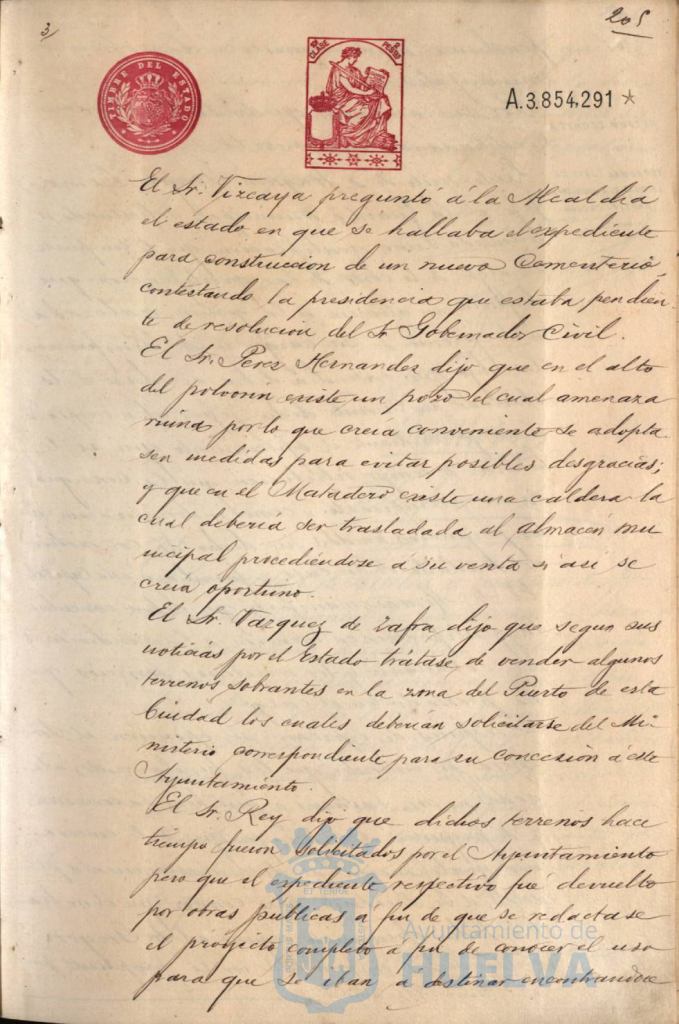 3/
205
TIMBRE DEL ESTADO
CLASE
PESETAS
A.3.854,291 *
El Sr. Vizcaya preguntó á la Alcaldiá
el estado en que se hallaba el expediente
para construccion de un nuevo Cementerio,
contestando la presidencia que estaba pendien-
te de resolucion del Sr Gobernador Civil.
El Sr. Perez Hernandez dijo que en el alto
del polvorin existe un pozo el cual amenaza
ruina por lo que creia conveniente se adopta-
sen medidas para evitar posibles desgracias;
y que en el Matadero existe una caldera la
cual deberia ser trasladada al almacén mu
nicipal procediéndose á su venta si asi se
creia oportuno.
El Sr. Vazquez de Zafra dijo que segun sus
noticias por el Estado trátase de vender algunos
terrenos sobrantes en la zona del Puerto de esta
Ciudad los cuales deberian solicitarse del Mi-
nisterio correspondiente para su concesión á este
Ayuntamiento.
El Sr. Rey dijo que dichos terrenos hace
tiempo fueron solicitados por el Ayuntamiento
pero que el expediente respectivo fué devuelto
por obras publicas á fin de que se redactase
el proyecto completo á fin de conocer el uso
para que se iban a destinar encontrandose
Ayuntamiento de
HUELVA